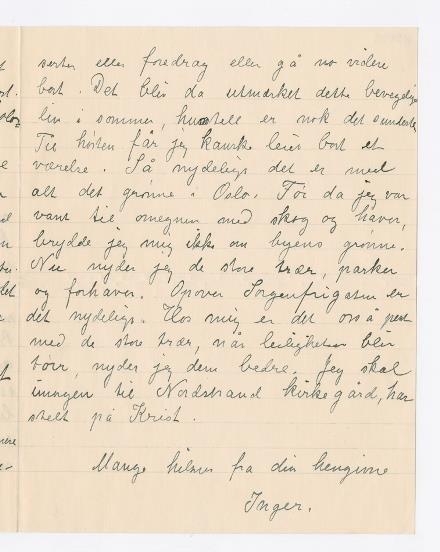 serter eller foredrag eller gå no videre
bort. Det blir da utmærket dette bevegelige
liv i sommer, hustell er nok det sundeste.
Til høsten får jeg kanske leiet bort et
værelse. Så nydeligt det er med
alt det grønne i Oslo. Før da jeg var
vant til omegnen med skog og haver,
brydde jeg mig ikke om byens grønne.
Nu nyder jeg de store trær, parker
og forhaver. Opover Sorgenfrigaten er
det nydeligt. Hos mig er det også pent
med de store trær, når leiligheten blir
nyder jeg dem bedre. Jeg skal
imorgen til Nordstrand kirkegård, har
stelt på Krist.
Mange hilsner fra din hengivne
Inger.